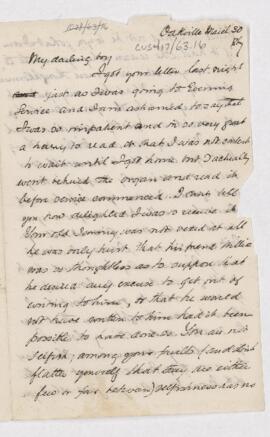 Oakville March 30
CUS417/63.16
My darling boy
I got your letter last night
just as I was going to Evening
Service and I am ashamed to say that
I was so impatient and in so very great
a hurry to read it that I was not content
to wait until I got home but I actually
went behind the organ and read it
before service commenced. I can't tell
you how delighted I was to receive it
Your old Tommy was not vexed at all
he was only hurt that his friend
was so thoughtless as to suppose that
he desired any excuse to get out of
writing to him, or that he would
not have written to him had it been
possible to have done so. You are not
selfish; among your faults (and don't
flatter yourself that they are either
few or far between) selfishness has no